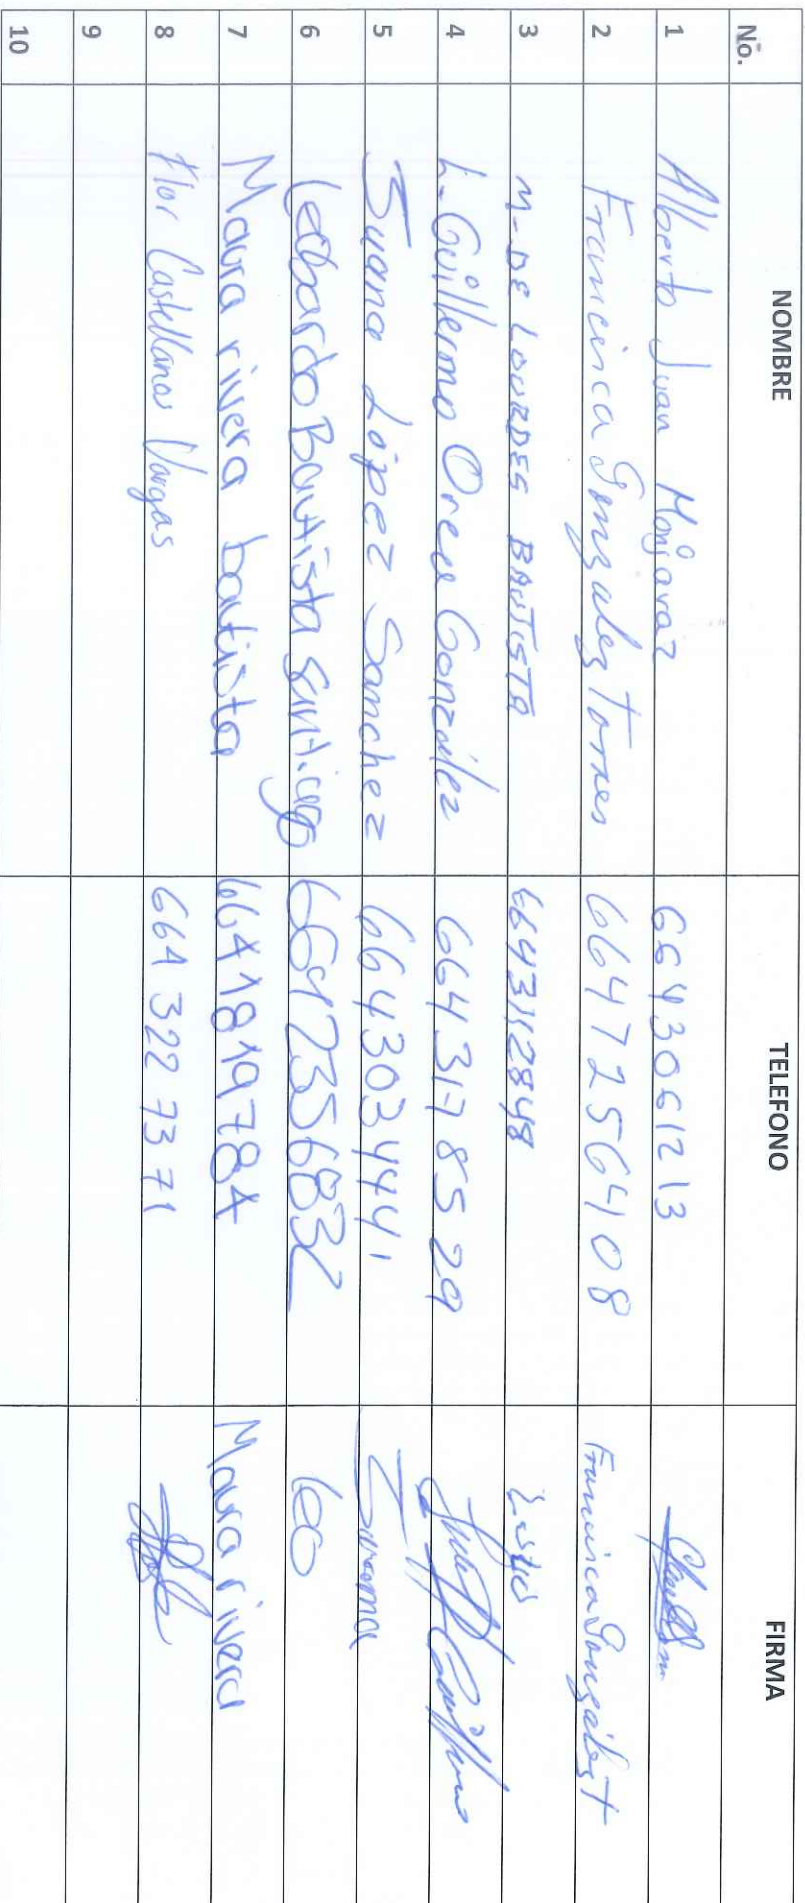 No. NOMBRE TELEFONO FIRMA
1 Alberto Juan Mijangaz 6643061213
2 Francisca Gonzalez Torres 6647256408 Francisca Gonzalez T
3 M-DE LOURDES BAUTISTA 6643112848
4 L-Guillermo Orea González 6643178529
5 Juana López Sanchez 6643034441 Juana
6 Leobardo Bautista Santiago 6642356832 Leo
7 Maura rivera bautista 6641819784 Maura rivera
8 Flor Castellanos Vargas 664 322 7371
9
10